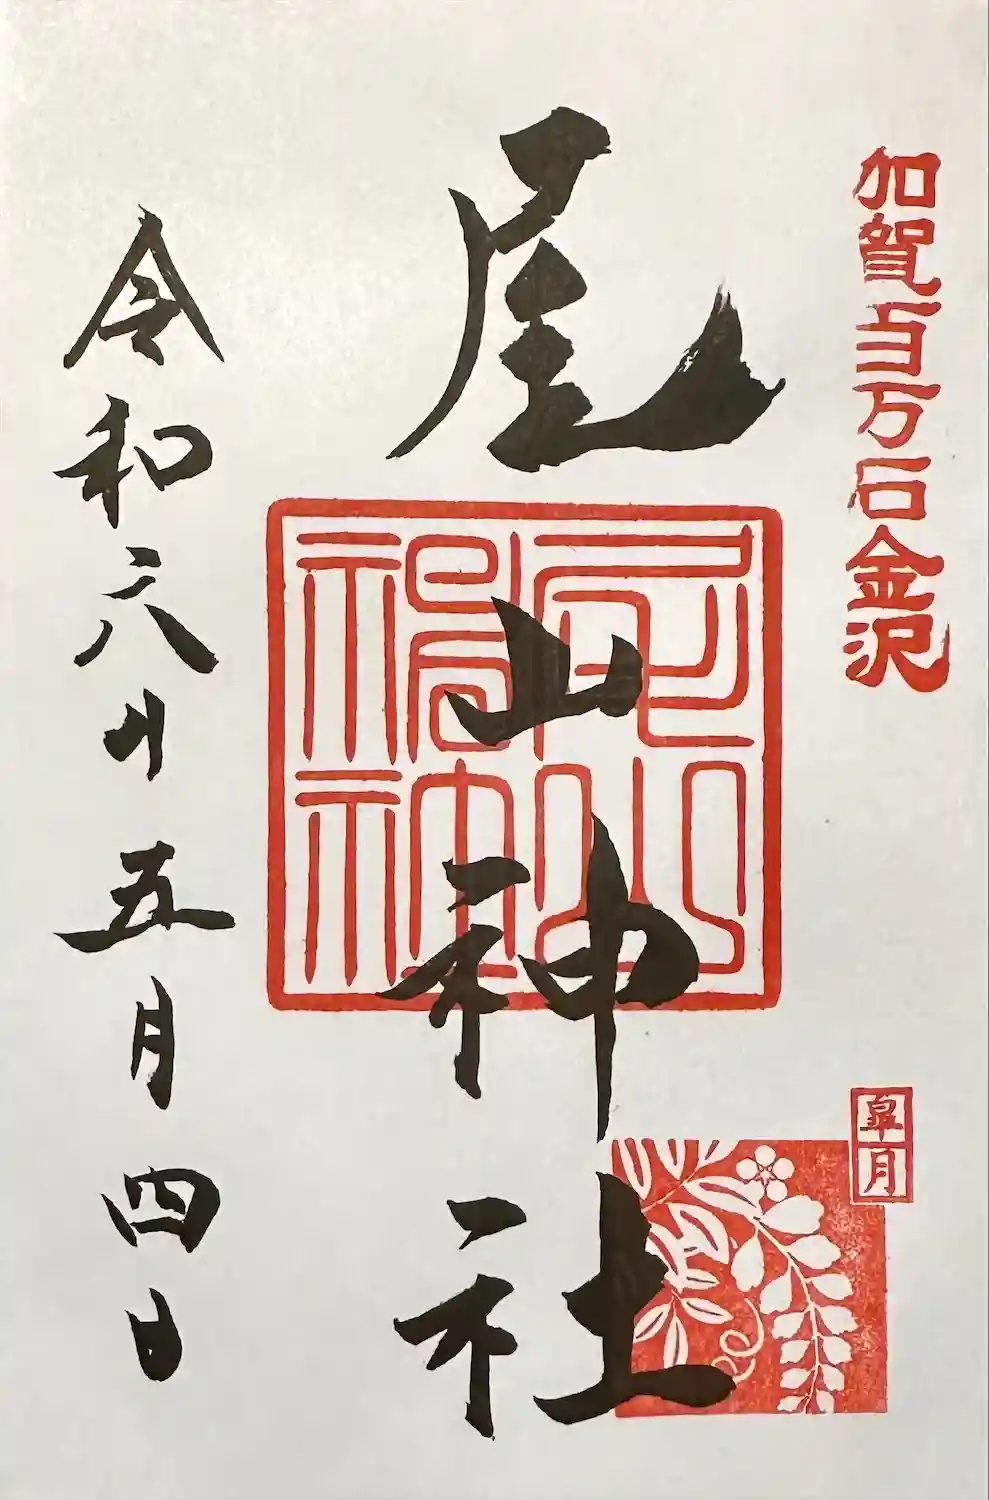 加賀百万石金沢
皐月
尾山神社
尾山神社
令和六年五月四日